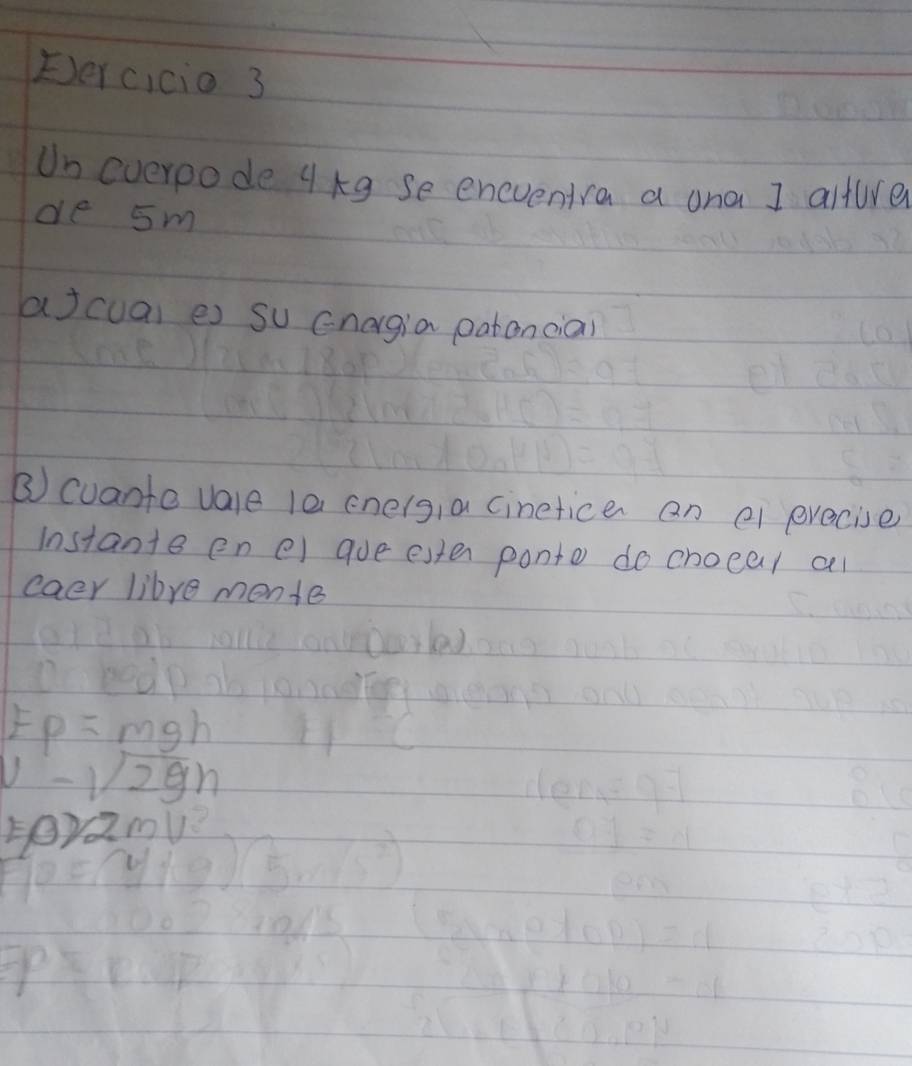 Ejercicio 3
Un cuerpo de 4 kg se encuentra a una I altura
de 5m
a) cual es su Enargia patancial
B) cuanto vale la energia cinetica en el precise
instante en el que esta ponto do chocar al
caer libre mente
Ep = mgh
V - √2gh
mv²
Ep = (4kg) (5m/s²)
Ep =